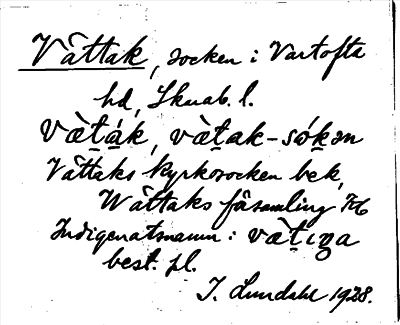 Våttak, socken i Vartofta
hd, Skarab. l.
vàt̠á̠k, vàt̠ak-sók̠ən
Våttaks kyrksocken bek,
Wåttaks församling Kb
Indigenatsnamn: vàt̠iŋa
best. pl.
I. Lundahl 1928.